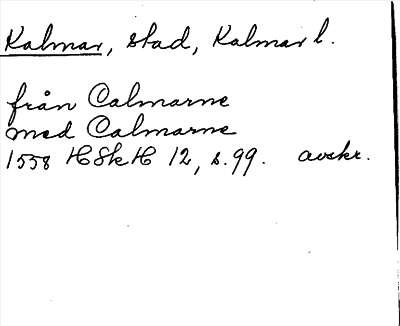 Kalmar, stad, Kalmar l.
från Calmarne
med Calmarne
1558 HSkH 12, s. 99. avskr.